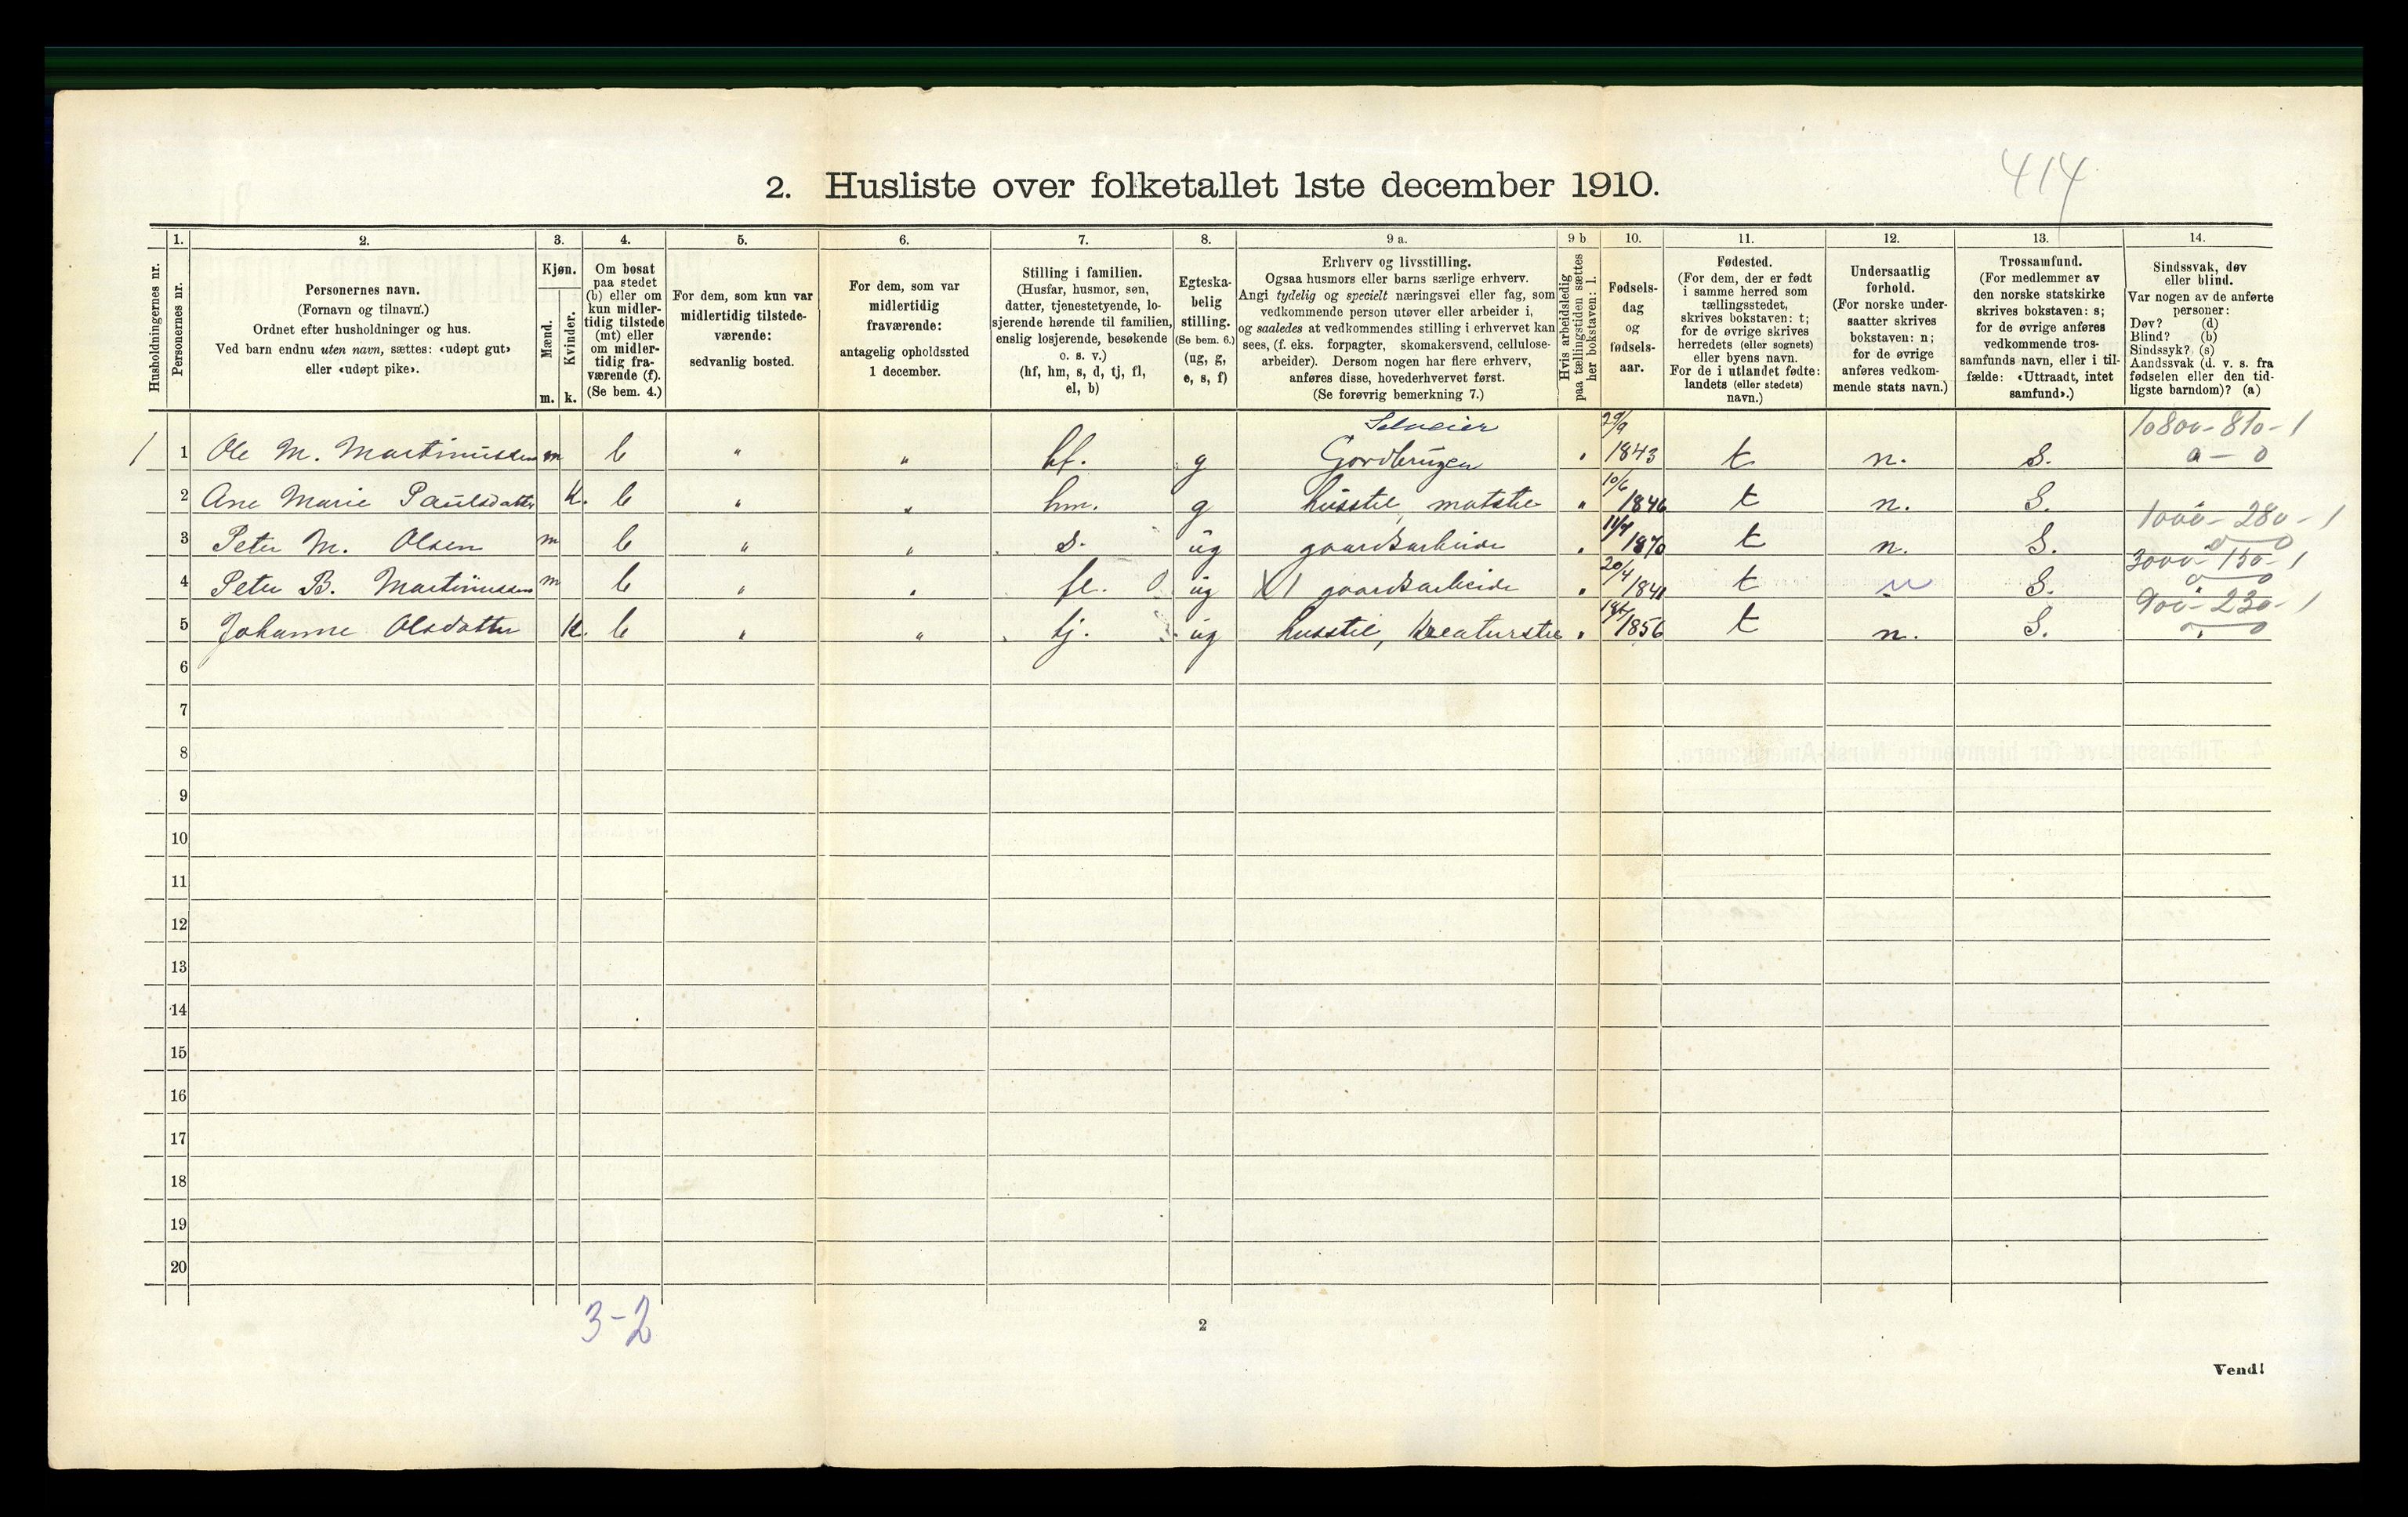 414
2. Husliste over folketallet 1ste december 1910.
Husholdningernes nr.
1. Personernes nr.
2. Personernes navn.
(Fornavn og tilnavn.)
Ordnet efter husholdninger og hus.
Ved barn endnu uten navn, sættes: «udøpt gut»
eller «udøpt pike».
3. Kjøn.
Mænd. m.
Kvinder. k.
4. Om bosat
paa stedet
(b) eller om
kun midler-
tidig tilstede
(mt) eller
om midler-
tidig fra-
værende (f).
(Se bem. 4.)
5. For dem, som kun var
midlertidig tilstede-
værende:
sedvanlig bosted.
6. For dem, som var
midlertidig
fraværende:
antagelig opholdssted
1 december.
7. Stilling i familien.
(Husfar, husmor, søn,
datter, tjenestetyende, lo-
sjerende hørende til familien,
enslig losjerende, besøkende
o. s. v.)
(hf, hm, s, d, tj, fl,
el, b)
8. Egteska-
belig
stilling.
(Se bem. 6.)
(ug, g,
e, s, f)
9 a. Erhverv og livsstilling.
Ogsaa husmors eller barns særlige erhverv.
Angi tydelig og specielt næringsvei eller fag, som
vedkommende person utøver eller arbeider i,
og saaledes at vedkommendes stilling i erhvervet kan
sees, (f. eks. forpagter, skomakersvend, cellulose-
arbeider). Dersom nogen har flere erhverv,
anføres disse, hovederhvervet først.
(Se forøvrig bemerkning 7.)
9 b Hvis arbeidsledig
paa tællingstiden sættes
her bokstaven: l.
10. Fødsels-
dag
og
fødsels-
aar.
11. Fødested.
(For dem, der er født
i samme herred som
tællingsstedet,
skrives bokstaven: t;
for de øvrige skrives
herredets (eller sognets)
eller byens navn.
For de i utlandet fødte:
landets (eller stedets)
navn.)
12. Undersaatlig
forhold.
(For norske under-
saatter skrives
bokstaven: n;
for de øvrige
anføres vedkom-
mende stats navn.)
13. Trossamfund.
(For medlemmer av
den norske statskirke
skrives bokstaven: s;
for de øvrige anføres
vedkommende tros-
samfunds navn, eller i til-
fælde: «Uttraadt, intet
samfund».)
14. Sindssvak, døv
eller blind.
Var nogen av de anførte
personer:
Døv? (d)
Blind? (b)
Sindssyk? (s)
Aandssvak (d. v. s. fra
fødselen eller den tid-
ligste barndom)? (a)
Selveier 29/9 10800-810-1
1 1 Ole M. Martinussen m b " " hf. g Gordbruger 1843 t n. S. a - 0
2 Ane Marie Paulsdatter K. b " " hm. g husstel, matstel " 10/6 1846 t n. S.
1000-280-1
3 Peter M. Olsen m b " " s. ug gaardsarbeide 1870 t n. S.
3000-150-1
4 Peter B. Martinussen m b " " fl. 0 ug X 1 gaardsarbeide 20/4 1841 t n S.
900-230-1
5 Johanne Olsdatter K. b " " tj. ug husstel, Kreaturstel 1856 t n. S.
6
7
8
9
10
11
12
13
14
15
16
17
18
19
20
3-2
2
Vend!